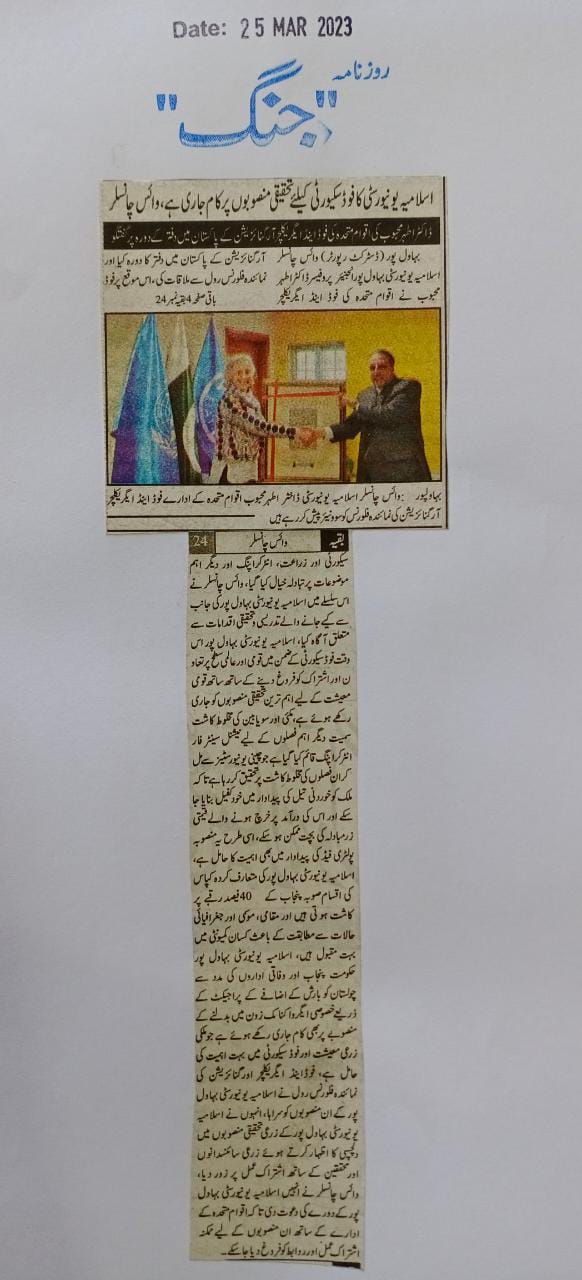 Date: 25 MAR 2023
روزنامہ
"جنگ"
اسلامیہ یونیورسٹی کا فوڈ سکیورٹی کیلئے تحقیقی منصوبوں پر کام جاری ہے، وائس چانسلر
ڈاکٹر اطہر محبوب کی اقوام متحدہ کی فوڈ اینڈ ایگریکلچر آرگنائزیشن کے پاکستان میں دفتر کے دورہ پر گفتگو
بہاول پور (ڈسٹرکٹ رپورٹر) وائس چانسلر
اسلامیہ یونیورسٹی بہاول پور انجینئر پروفیسر ڈاکٹر اطہر
محبوب نے اقوام متحدہ کی فوڈ اینڈ ایگریکلچر
آرگنائزیشن کے پاکستان میں دفتر کا دورہ کیا اور
نمائندہ فلورنس رول سے ملاقات کی، اس موقع پر فوڈ
باقی صفحہ 4 بقیہ نمبر 24
بہاولپور: وائس چانسلر اسلامیہ یونیورسٹی ڈاکٹر اطہر محبوب اقوام متحدہ کے ادارے فوڈ اینڈ ایگریکلچر
آرگنائزیشن کی نمائندہ فلورنس کو سووینئر پیش کر رہے ہیں
بقیہ وائس چانسلر 24
سکیورٹی اور زراعت، انٹرکراپنگ اور دیگر اہم
موضوعات پر تبادلہ خیال کیا گیا، وائس چانسلر نے
اس سلسلے میں اسلامیہ یونیورسٹی بہاول پور کی جانب
سے کیے جانے والے تدریسی و تحقیقی اقدامات سے
متعلق آگاہ کیا، اسلامیہ یونیورسٹی بہاول پور اس
وقت فوڈ سکیورٹی کے ضمن میں قومی اور عالمی سطح پر تعاو
ن اور اشتراک کو فروغ دینے کے ساتھ ساتھ قومی
معیشت کے لیے اہم ترین تحقیقی منصوبوں کو جاری
رکھے ہوئے ہے، مکئی اور سویابین کی مخلوط کاشت
سمیت دیگر اہم فصلوں کے لیے نیشنل سینٹر فار
انٹرکراپنگ قائم کیا گیا ہے جو چینی یونیورسٹیز سے مل
کر ان فصلوں کی مخلوط کاشت پر تحقیق کر رہا ہے تاکہ
ملک کو خوردنی تیل کی پیداوار میں خود کفیل بنایا جا
سکے اور اس کی درآمد پر خرچ ہونے والے قیمتی
زرمبادلہ کی بچت ممکن ہو سکے، اسی طرح یہ منصوبہ
پولٹری فیڈ کی پیداوار میں بھی اہمیت کا حامل ہے،
اسلامیہ یونیورسٹی بہاول پور کی متعارف کردہ کپاس
کی اقسام صوبہ پنجاب کے 40 فیصد رقبے پر
کاشت ہوتی ہیں اور مقامی، موسمی اور جغرافیائی
حالات سے مطابقت کے باعث کسان کمیونٹی میں
بہت مقبول ہیں، اسلامیہ یونیورسٹی بہاول پور
حکومت پنجاب اور وفاقی اداروں کی مدد سے
چولستان کو بارش کے اضافے کے پراجیکٹ کے
ذریعے خصوصی ایگرو اکنامک زون میں بدلنے کے
منصوبے پر بھی کام جاری رکھے ہوئے ہے جو ملکی
زرعی معیشت اور فوڈ سکیورٹی میں بہت اہمیت کی
حامل ہے، فوڈ اینڈ ایگریکلچر اورگنائزیشن کی
نمائندہ فلورنس رول نے اسلامیہ یونیورسٹی بہاول
پور کے ان منصوبوں کو سراہا، انہوں نے اسلامیہ
یونیورسٹی بہاول پور کے زرعی تحقیقی منصوبوں میں
دلچسپی کا اظہار کرتے ہوئے زرعی سائنسدانوں
اور محققین کے ساتھ اشتراک عمل پر زور دیا،
وائس چانسلر نے انہیں اسلامیہ یونیورسٹی بہاول
پور کے دورے کی دعوت دی تاکہ اقوام متحدہ کے
ادارے کے ساتھ ان منصوبوں کے لیے ممکنہ
اشتراک عمل اور روابط کو فروغ دیا جا سکے۔